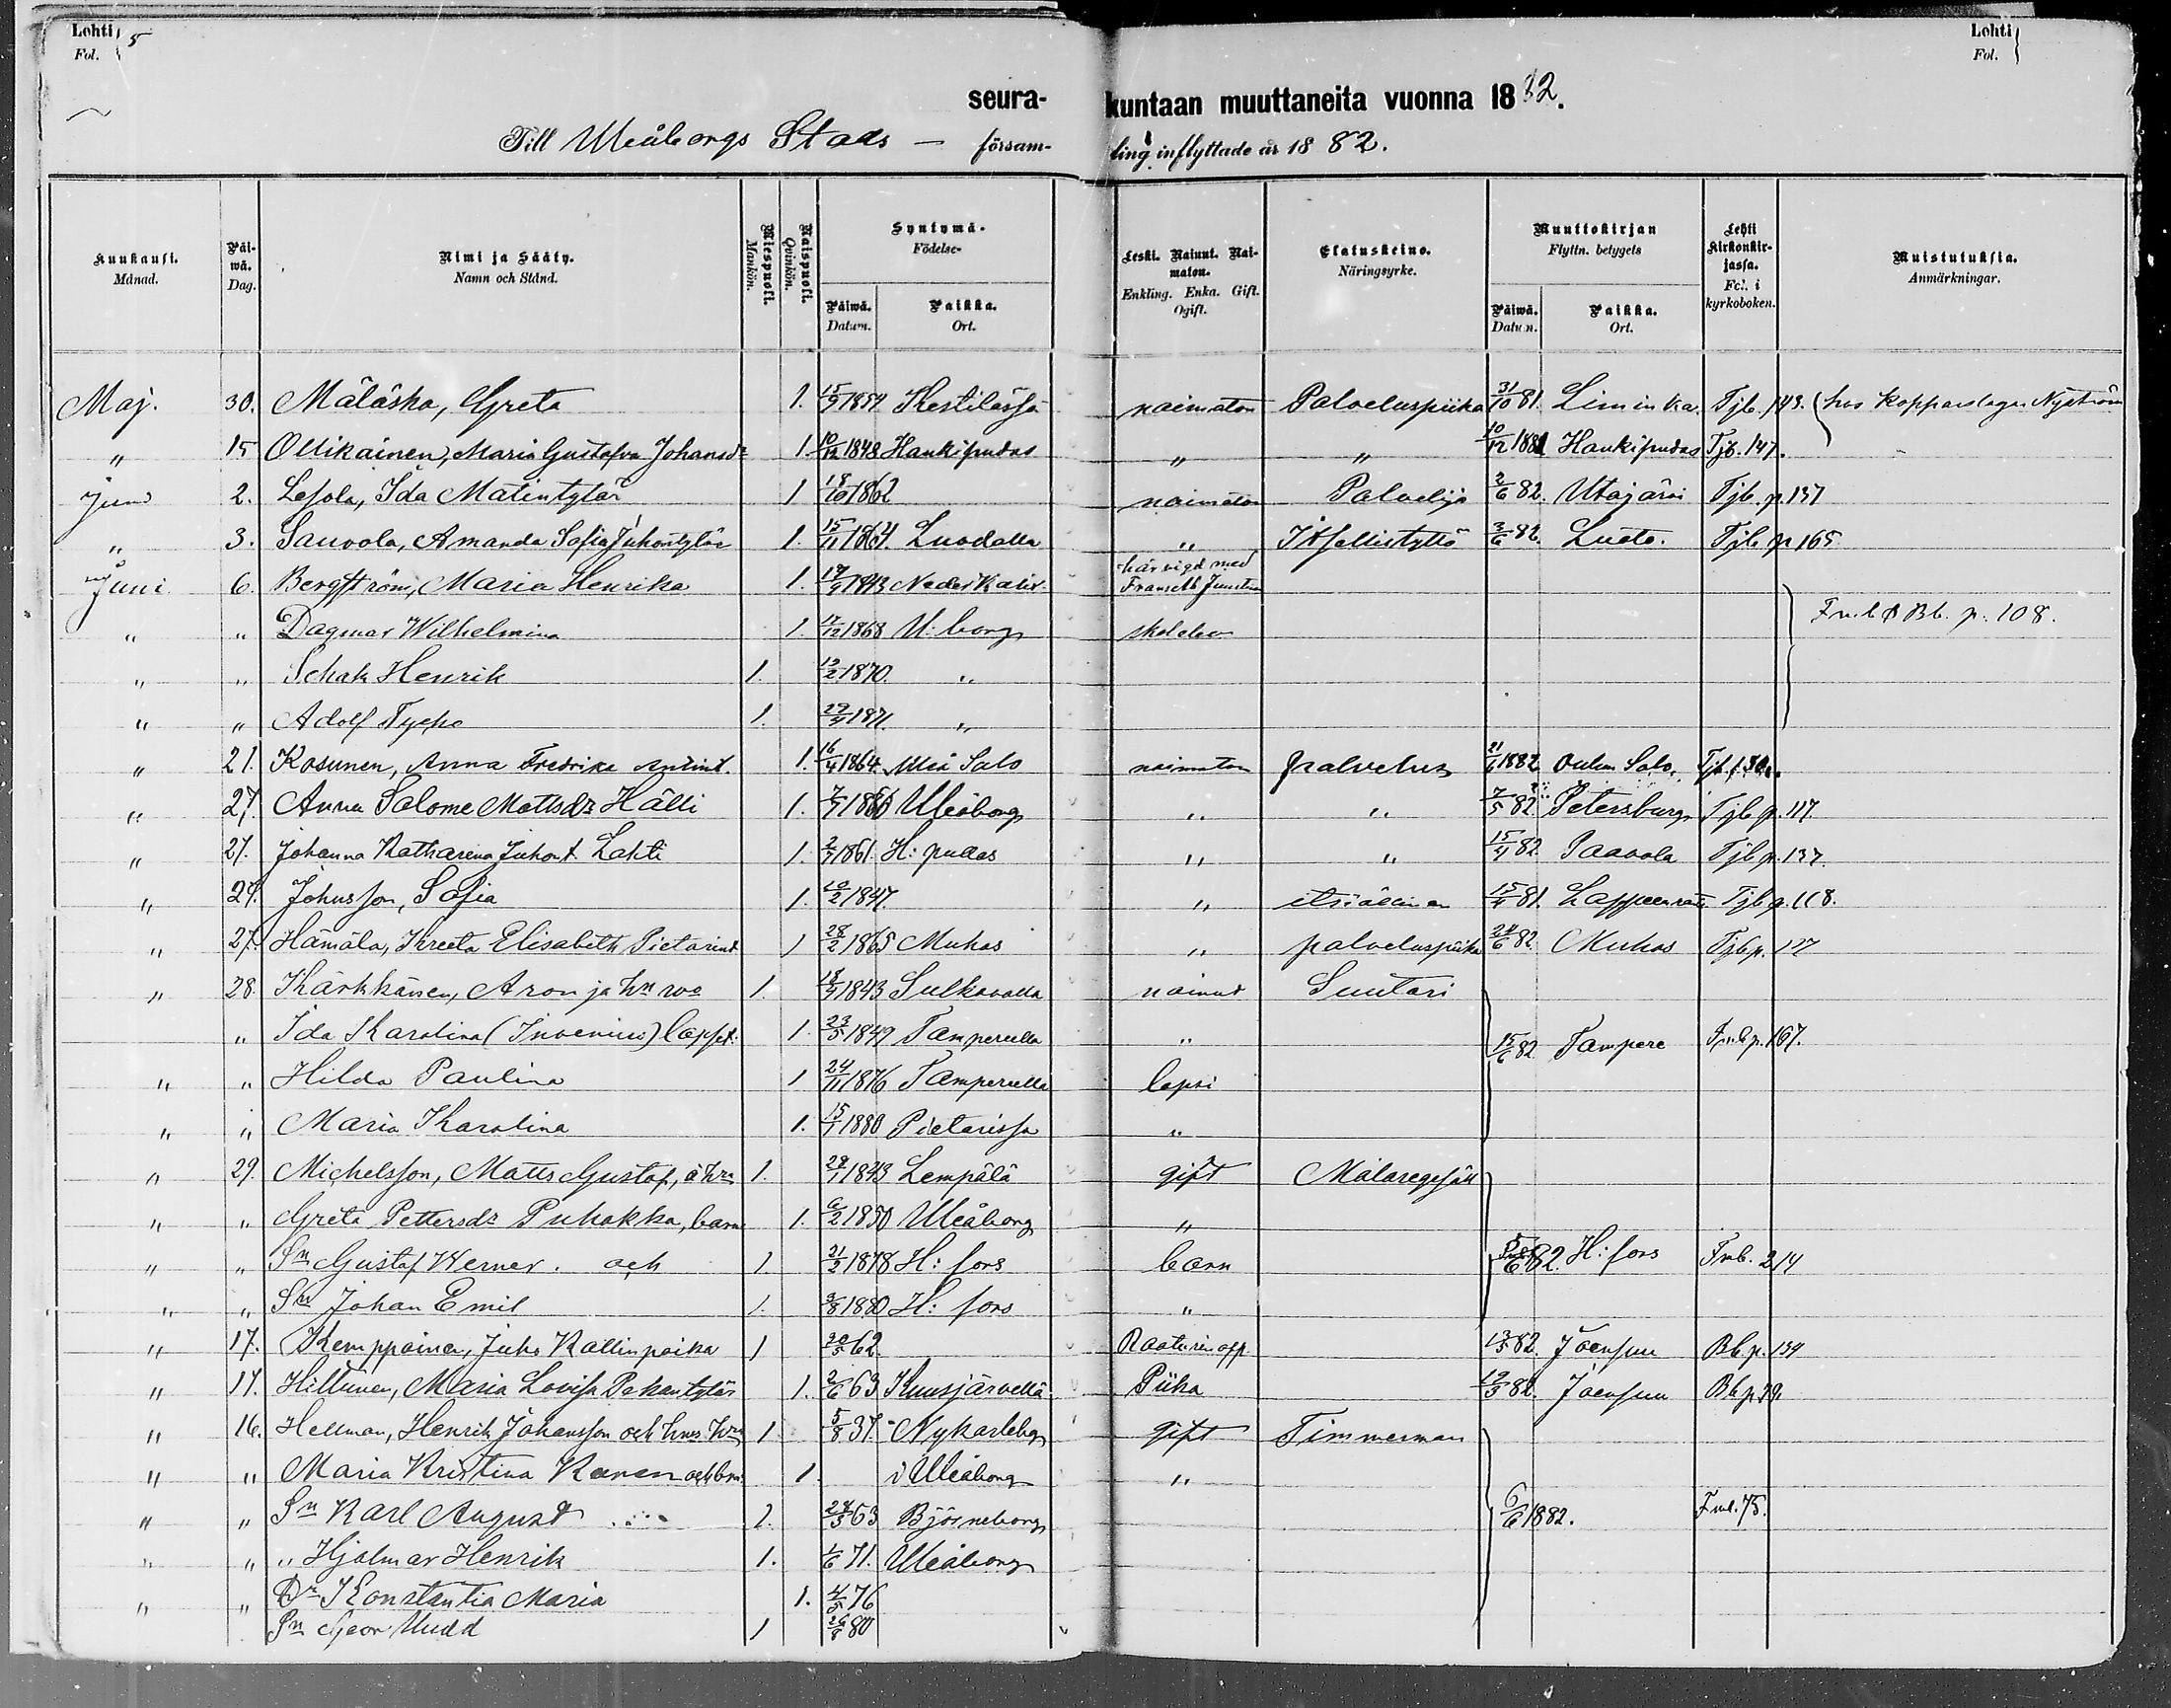 Lohti 5
Fol.
Lohti
Fol.
seura- kuntaan muuttaneita vuonna 1882.
Till Uleåborgs Stads — försam- ling inflyttade år 1882.
Kuukausi. Päi-wä. Nimi ja Sääty. Miespuoli. Waispuoli. Syntymä- Leski. Nainut. Nai-maton. Elatuskeino. Muuttokirjan Lehti Kirkonkir-jassa. Muistutuksia.
Månad. Dag. Namn och Stånd. Mankön. Qvinkön. Födelse- Enkling. Enka. Gift. Ogift. Näringsyrke. Flyttn. betygets Fol. i kyrkoboken. Anmärkningar.
Päiwä. Paikka. Päiwä. Paikka.
Datum. Ort. Datum. Ort.
Maj. 30. Mäläska, Greta 1. 15/9 1854 Kestilässä naimaton Palveluspiika 31/10 81. Liminka. Tjb. 143. (hos kopparslagar Nyström
" 15 Ollikainen, Maria Gustafva Johansdr 1 10/12 1848 Haukipudas " " 10/12 1881 Haukipudas Tjb. 147.
Juni 2. Lesola, Ida Matintytär 1 18/10 1862 naimaton Palvelija 2/6 82. Utajärvi Tjb. p. 137
" 3. Sauvola, Amanda Sofia Juhontytär 1. 15/11 1864. Luodolla " Itsellistyttö 3/6 82. Luoto. Tjb p 165.
Juni 6. Bergström, Maria Henrika 1. 17/9 1843 Neder Kalix härvigd med Frans
" " Dagmar Wilhelmina 1. 17/12 1868 U:borg Fmb & Bb. p. 108.
" " Schak Henrik 1. 13/2 1870. "
" " Adolf Tycho 1. 29/4 1871. "
" 21. Kosunen, Anna Fredrika Antint. 1. 16/4 1864 Salo naimaton palvelus 21/6 1882 Oulun Salo.
" 27. Anna Salome Mattsdr Hälli 1. 7/7 1860 Uleåborg " " 7/5 82. Petersburg Tjb p. 117.
" 27. Johanna Katharina Juhont. Lahti 1. 2/7 1861. H:pudas " " 15/4 82. Paavola Tjb p. 137.
" 27. Johnsson, Sofia 1. 10/2 1847. " itsiällinen 15/4 81. Lappeenra. Tjb p. 118.
" 27. Hämälä, Kreeta Elisabeth Pietarint 1 28/2 1865 Muhos " palveluspiika 24/6 82. Muhos Tjb p. 127
" 28. Kärkkäinen, Aron ja hn wo 1. 18/9 1843 Sulkavalla nainut Suutari
" Ida Karolina (Invenius) lapset. 1. 23/5 1849 Tampereella " 15/6 82 Tampere Fmb p. 167.
" " Hilda Paulina 1 24/11 1876 Tampereella lapsi
" " Maria Karolina 1. 15/1 1880 Pietarissa "
" 29. Michelsson, Matts Gustaf, o hu 1. 28/1 1843 Lempälä gift Målaregesäll
" " Greta Pettersdr Puhakka, barn 1. 6/2 1850 Uleåborg "
" " Sn Gustaf Werner. och 1. 21/2 1878 H:fors barn 82. H:fors Fmb. 214
" " Sn Johan Emil 1. 3/8 1880 H:fors "
" 17. Kemppainen, Juho Kallinpoika 1 30/5 62. Raaturin opp. 13/5 82. Joensuu Bb. p. 139
" 17. Hiltunen, Maria Lovisa Pekantytär 1. 2/6 63 Kuusjärvellä Piika 19/5 82. Joensuu Bb p 29.
" 16. Hellman, Henrik Johansson och hns hu 1. 5/8 37. Nykarleby gift Timmerman
" " Maria Kristina och brn. 1. i Uleåborg "
" " Sn Karl August 1. 27/3 63 Björneborg 6/6 1882. Fmb. 75.
" " " Hjalmar Henrik 1. 1/6 71. Uleåborg
" " Dr Konstantia Maria 1. 4/5 76
Sn Georg 1 26/8 80